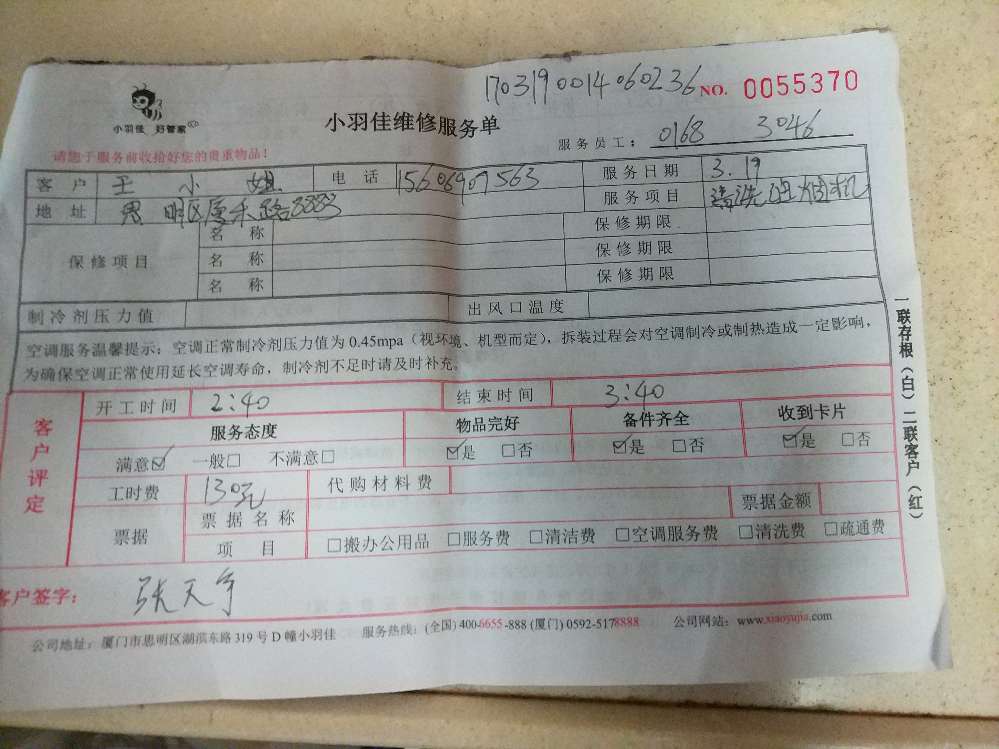 170319001406​0236 NO. 0055370
小羽佳 好管家
小羽佳维修服务单
服务员工： 0168 3046
请您于服务前收拾好您的贵重物品！
客户 王小姐 电话 15606907563 服务日期 3.19
地址 思明区厦禾路8883 服务项目 清洗油烟机
保修项目 名称 保修期限
名称 保修期限
名称 保修期限
制冷剂压力值 出风口温度
空调服务温馨提示：空调正常制冷剂压力值为 0.45mpa（视环境、机型而定），拆装过程会对空调制冷或制热造成一定影响，
为确保空调正常使用延长空调寿命，制冷剂不足时请及时补充。
客户评定
开工时间 2:40 结束时间 3:40
服务态度 物品完好 备件齐全 收到卡片
满意☑ 一般□ 不满意□ ☑是 □否 ☑是 □否 ☑是 □否
工时费 130元 代购材料费
票据 票据名称 票据金额
项目 □搬办公用品 □服务费 □清洁费 □空调服务费 □清洗费 □疏通费
客户签字： 张天宇
公司地址：厦门市思明区湖滨东路 319 号 D 幢小羽佳 服务热线：(全国) 400-6655-888 (厦门) 0592-5178888 公司网站：www.xiaoyujia.com
一联存根（白）二联客户（红）